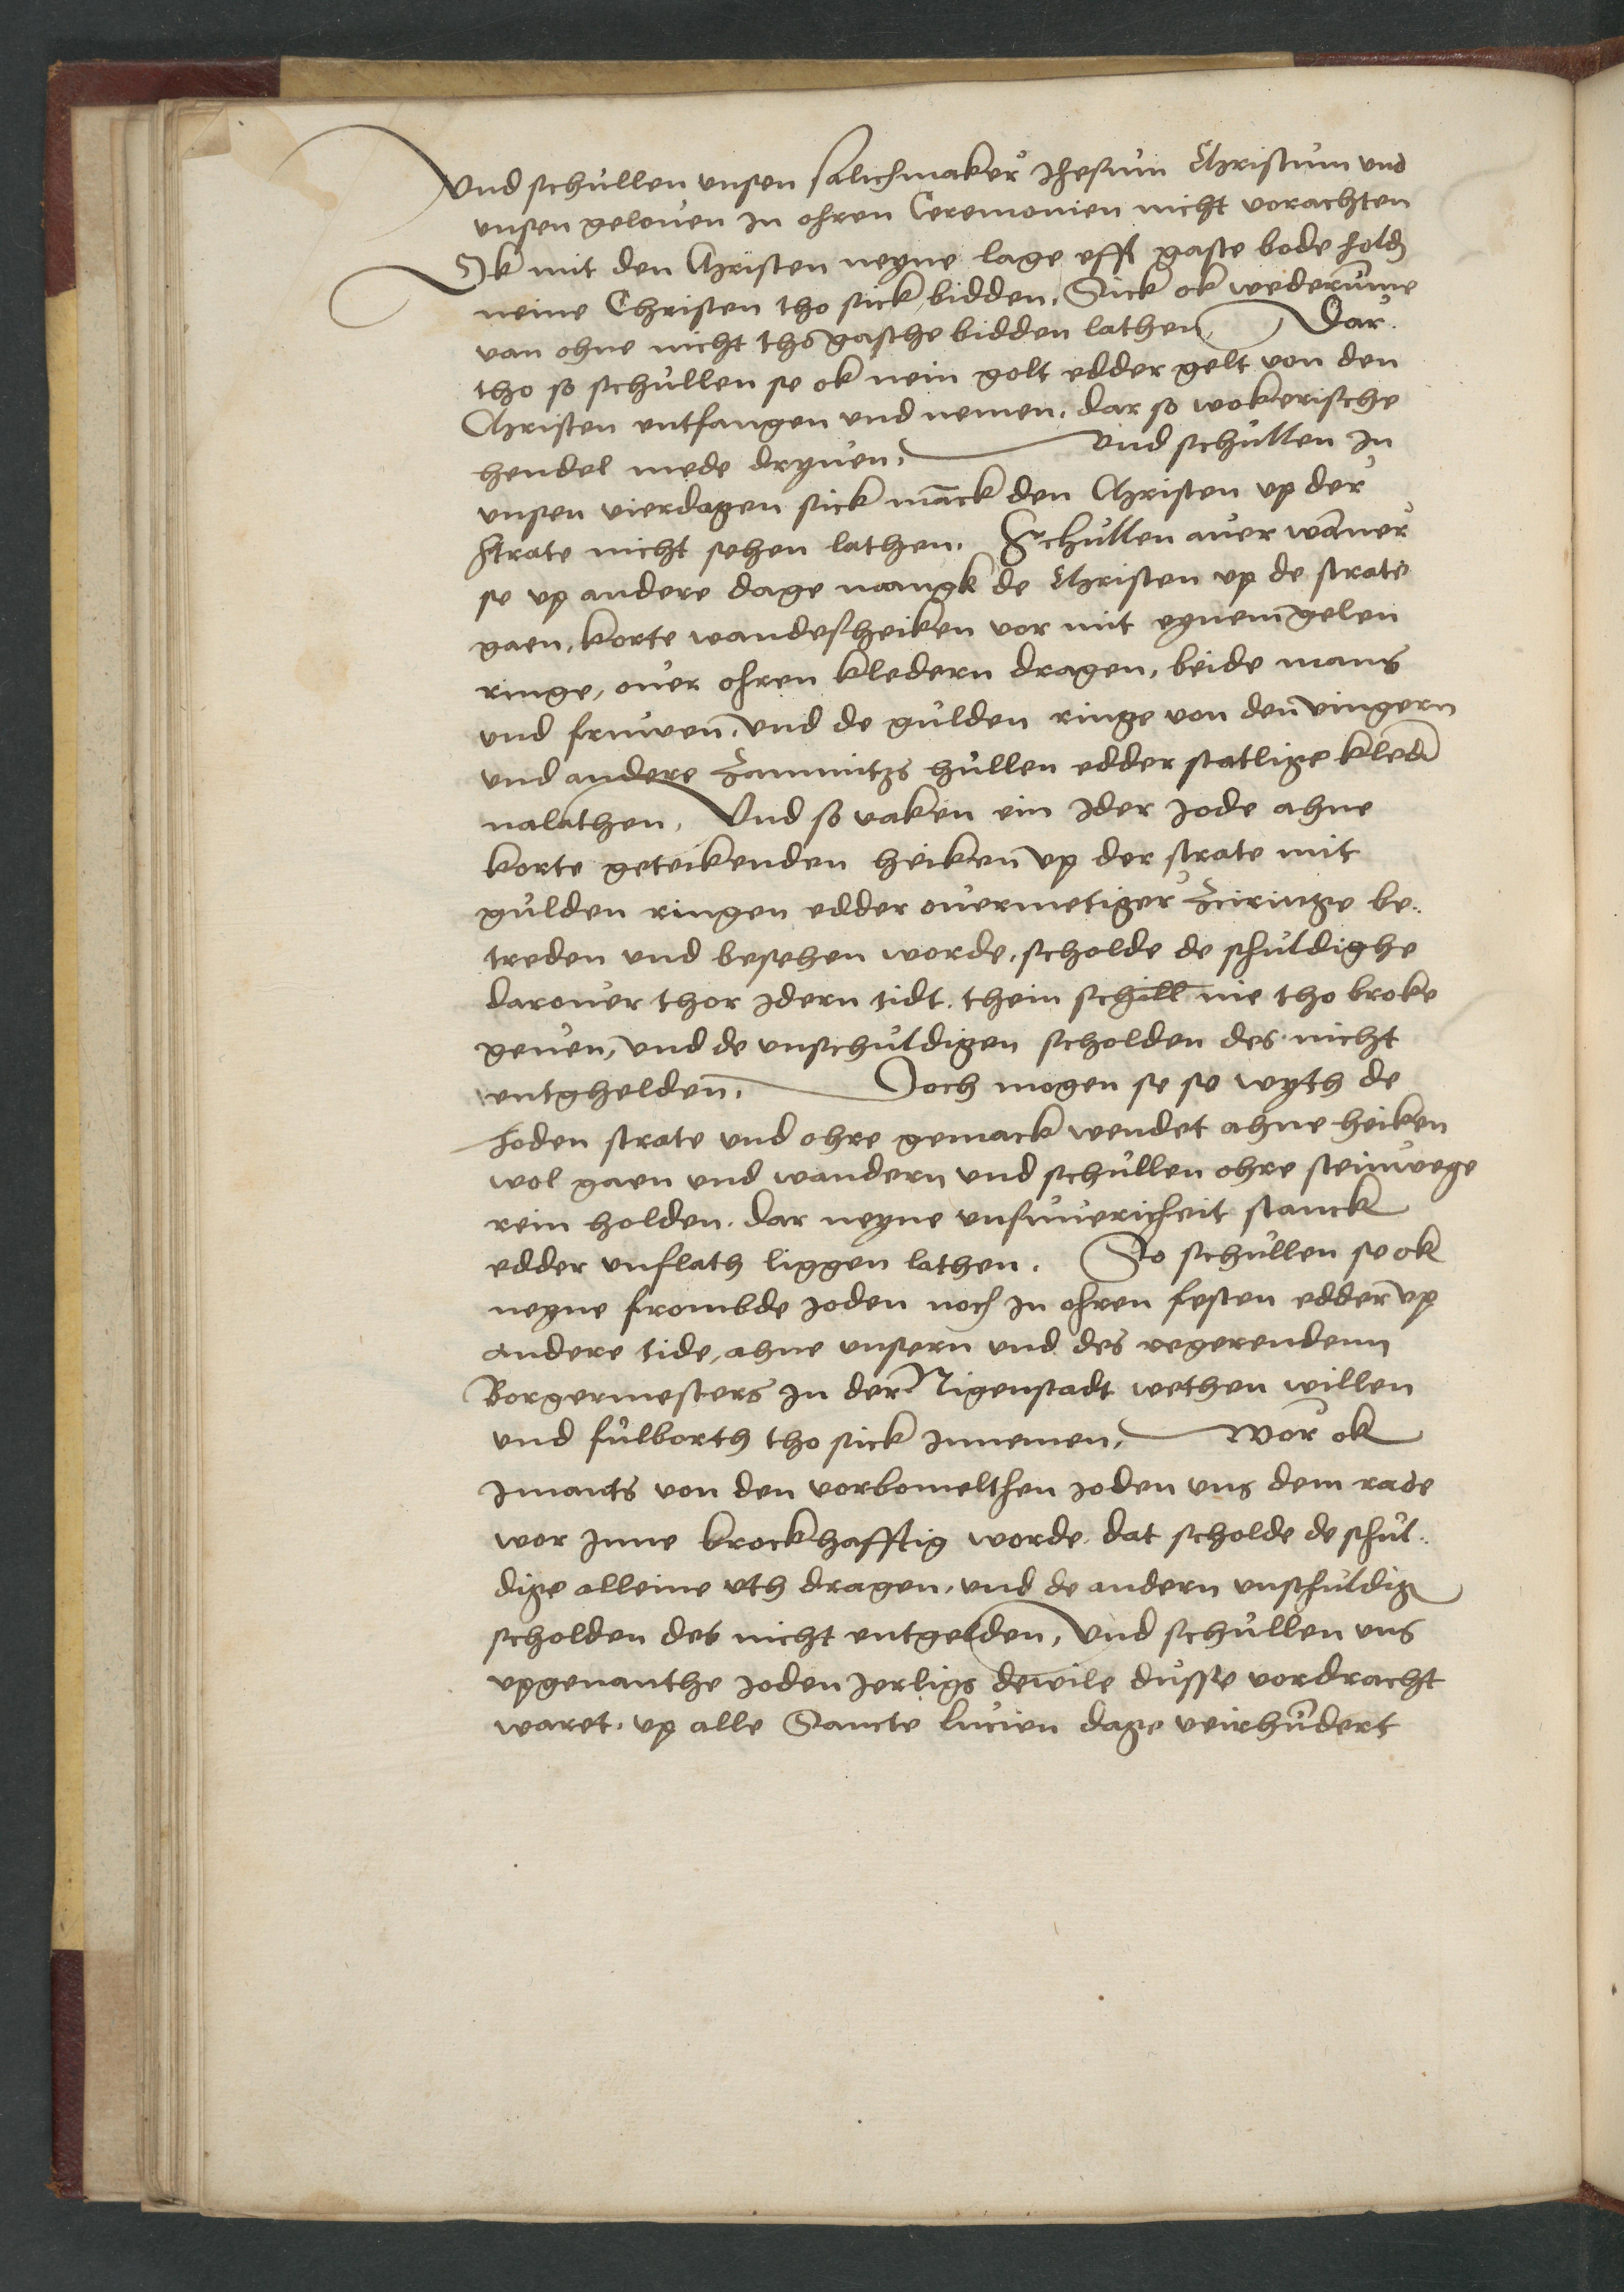 Vnd schullen vnsen salichmaker Jhesum Christum vnd
vnsen gelouen in ohren Ceremonien nicht vorachten
Ok mit den Christen neyne lage efft gaste bode holdn
neine Christen tho sick bidden. Sick ok wederumme
van ohne nicht tho gasthe bidden lathen Dar
tho so schullen se ok nein golt edder gelt von den
Christen entfangen vnd nemen. dar so wokerische
hendel mede dryuen. Vnd schullen in
vnsen vierdagen sick manck den Christen vp der
strate nicht sehen lathen. Schullen auer wanner
se vp andere dage mangk de Christen vp de strate
gaen, korte wandesheiken vor mit eynem gelen
ringe, ouer ohren kledern dragen, beide mans
vnd fruwen, vnd de gulden ringe von den vingern
vnd andere Zammitzs hullen edder statlige kledn
nalathen, Vnd so vaken ein Jder Jode ahne
korte geteikenden heiken vp der strate mit
gulden ringen edder ouermetiger Zciringe be..
treden vnd besehen worde, scholde de schuldighe
darouer thor Jdern tidt. thein schill nie tho broke
geuen, vnd de vnschuldigen scholden des nicht
entghelden. Doch mogen se so wyth de
Joden strate vnd ohre gemack wendet ahne heiken
wol gaen vnd wandern vnd schullen ohre steinwege
rein holden. dar neyne vnsuuericheit stanck
edder vnflath liggen lathen. So schullen se ok
neyne frombde Joden noch in ohren festen edder vp
andere tide, ahne vnsern vnd des regerendenn
Borgermesters in der Nigenstadt wethen willen
vnd fulborth tho sick innemen. Wor ok
Jmants von den vorbomelthen Joden vns dem rade
wor inne brockhafftig worde. dat scholde de schul..
dige alleine vth dragen, vnd de andern vnschuldig
scholden des nicht entgelden, Vnd schullen vns
vpgenanthe Joden Jerligs dewile dusse vordracht
waret, vp alle Sancte lucien dage veirhundert